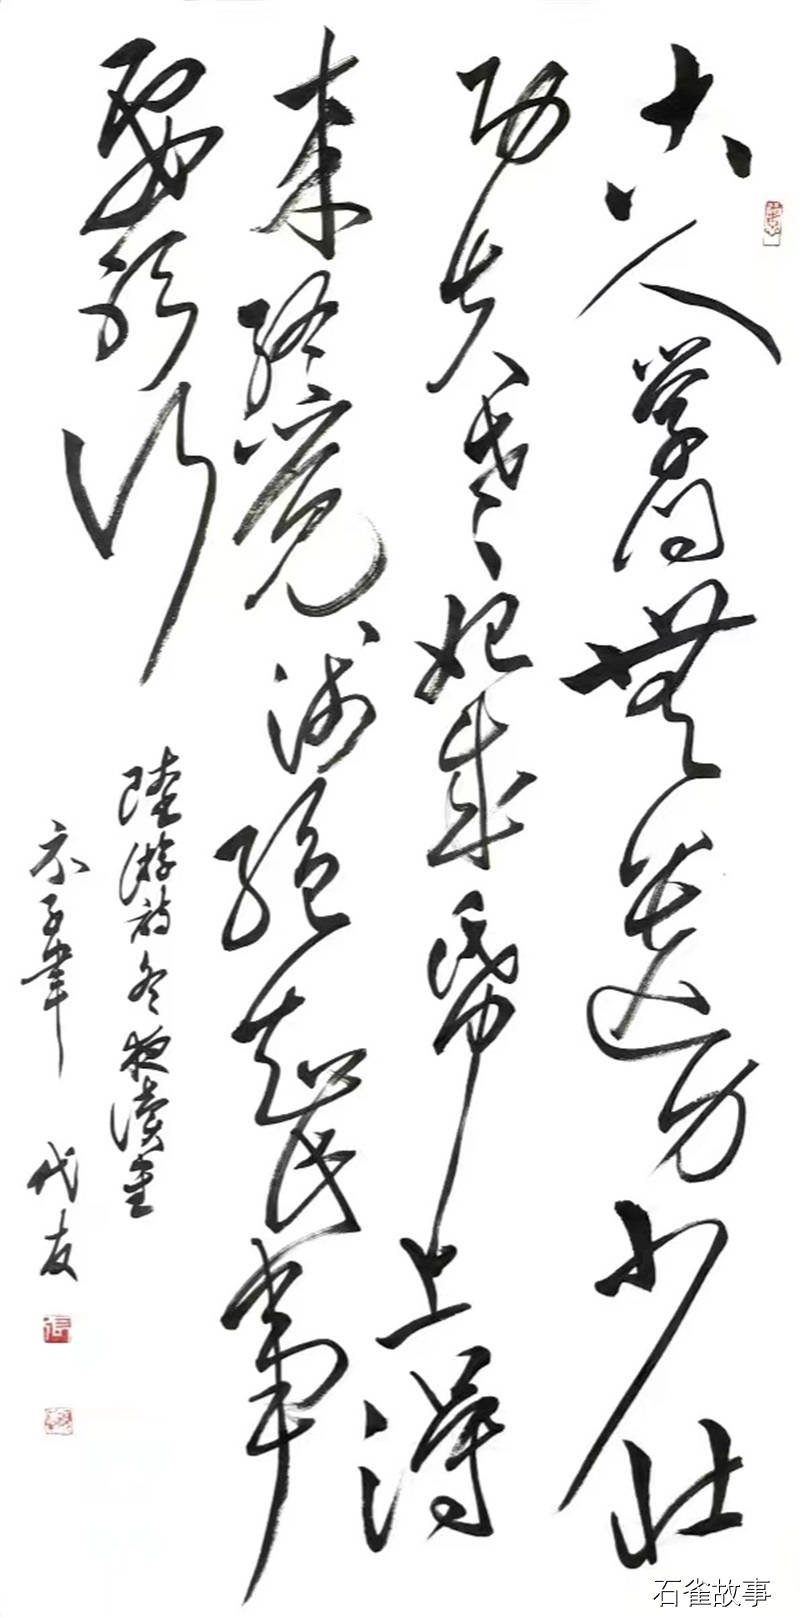 古人学问無遺力少壮
功夫老始成帋上得
来终觉浅绝知此事
要躬行
陸游诗冬夜读書
示子聿 代友
石雀故事